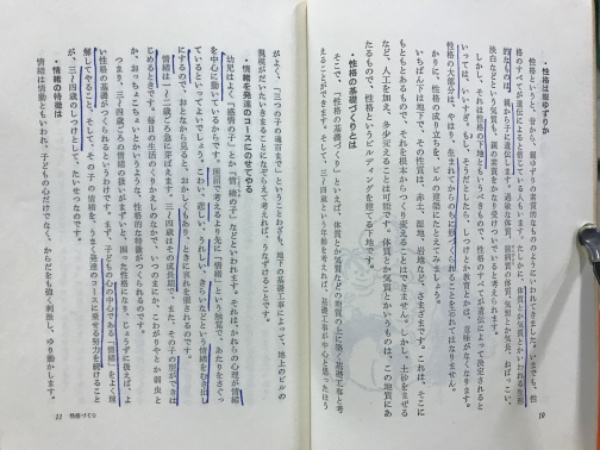 ・性格は親ゆずりか
性格というと、昔から、親ゆずりの素質的なものにいわれてきました。いまでも、性
格のすべてが遺伝によると信じている人もいます。たしかに、体質とか気質とかいわれる生理
的なものは、親から子に遺伝します。過敏な体質、弱病質の体質、気短とか気長、おぼっこい、
淡白などという気質も、親の素質をかなり受けついでいると考えられます。
しかし、それは性格の下地ともいうべきもので、性格のすべてが遺伝によって決定されると
いっては、いいすぎ。もし、そうだとしたら、しつけとか教育とかは、意味がなくなります。
性格の大部分は、やはり、生まれてからのちに形づくられることを忘れてはなりません。
かりに、性格の成り立ちを、ビルの建築にたとえてみましょう。
いちばん下は地下で、その性質は、赤土、湿地、岩地など、さまざまです。これは、そこに
もともとあるもので、それを根本からつくり変えることはできません。しかし、土砂をまぜる
など、人工を加え、多少変えることは可能です。体質とか気質とかいうものは、この地質にあ
たるもので、性格というビルディングを建てる下地です。
・性格の基礎づくりとは
そこで、「性格の基礎づくり」といえば、体質とか気質などの地質の上に築く基礎工事と考
えることができます。そして、三〜四歳という年齢を考えれば、基礎工事が中心と思ったほう
10
がよく、「三つの子の魂百まで」ということわざも、地下の基礎工事によって、地上のビルの
規模がだいたいきまることになぞらえて考えれば、うなずけることです。
・情緒を発達のコースにのせてやる
幼児はよく「感情の子」とか「情緒の子」などといわれます。それは、かれらの心理が情緒
を中心に動いているからです。理屈で考えるより先に「情緒」という触覚で、あたりをさぐっ
ているといってよいでしょう。こわい、悲しい、うれしい、きらいなどという情緒をむき出し
にするので、おとなから見ると、おかしくもあり、ときに荒れを悩まされるのです。
情緒は一〜二歳ごろ急に芽ばえます。三〜四歳はその成長期で、また、その子の別ができは
じめるときです。毎日の生活のくりかえしのなかで、いつのまにか、こわがりやとか弱虫と
か、おっちょこちょいとかいうような、性格的な特徴がつくられるのです。
つまり、三〜四歳ごろの情緒の扱いがまずいと、困った性格になり、じょうずに扱えば、よ
い性格の基礎がつくられるというわけです。まず、子どもの心の中心である「情緒」をよく理
解してやること、そして、その子の情緒を、うまく発達のコースに乗せる努力を続けること
が、三〜四歳のしつけとして、たいせつなのです。
・情緒の特徴は
情緒は情動ともいわれ、子どもの心だけでなく、からだをも強く刺激し、ゆり動かします。
11 性格づくり